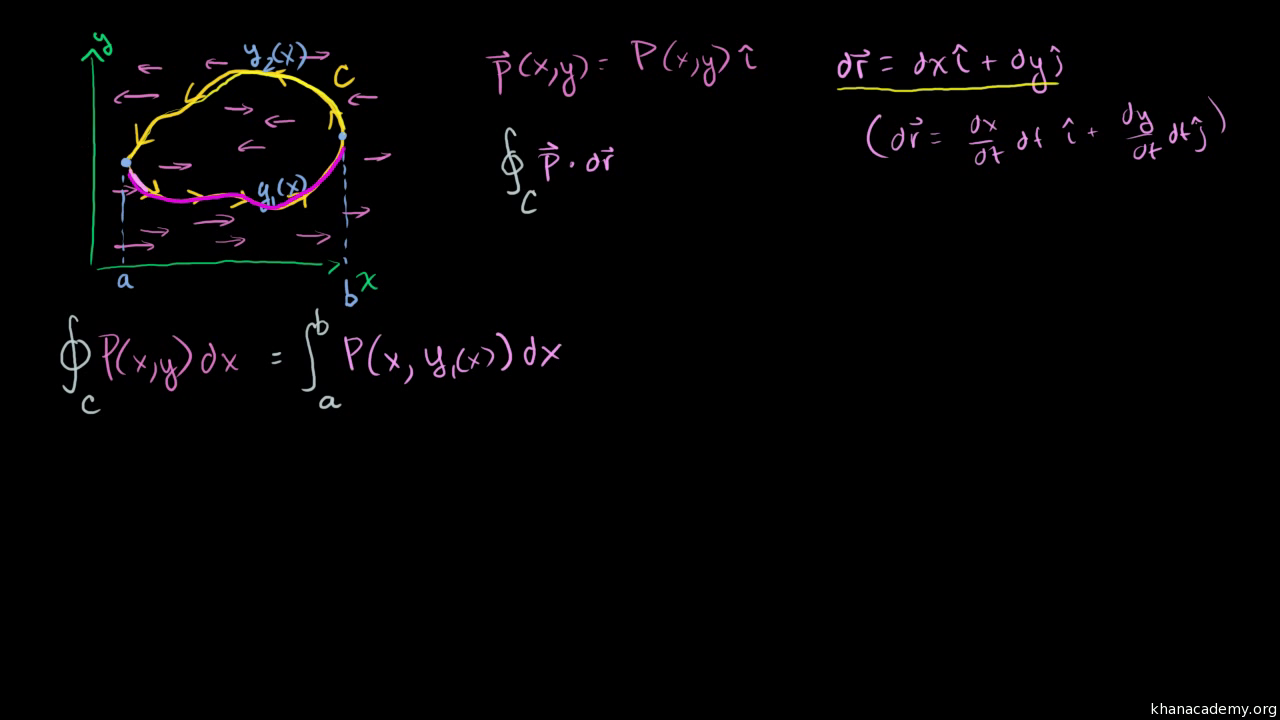 y
y₂(x)
C
y₁(x)
a
b
x
P⃗(x,y) = P(x,y) î
∮_C P⃗ · dr⃗
dr⃗ = dx î + dy ĵ
(dr⃗ = dx/dt dt î + dy/dt dt ĵ)
∮_C P(x,y) dx = ∫_a^b P(x, y₁(x)) dx
khanacademy.org